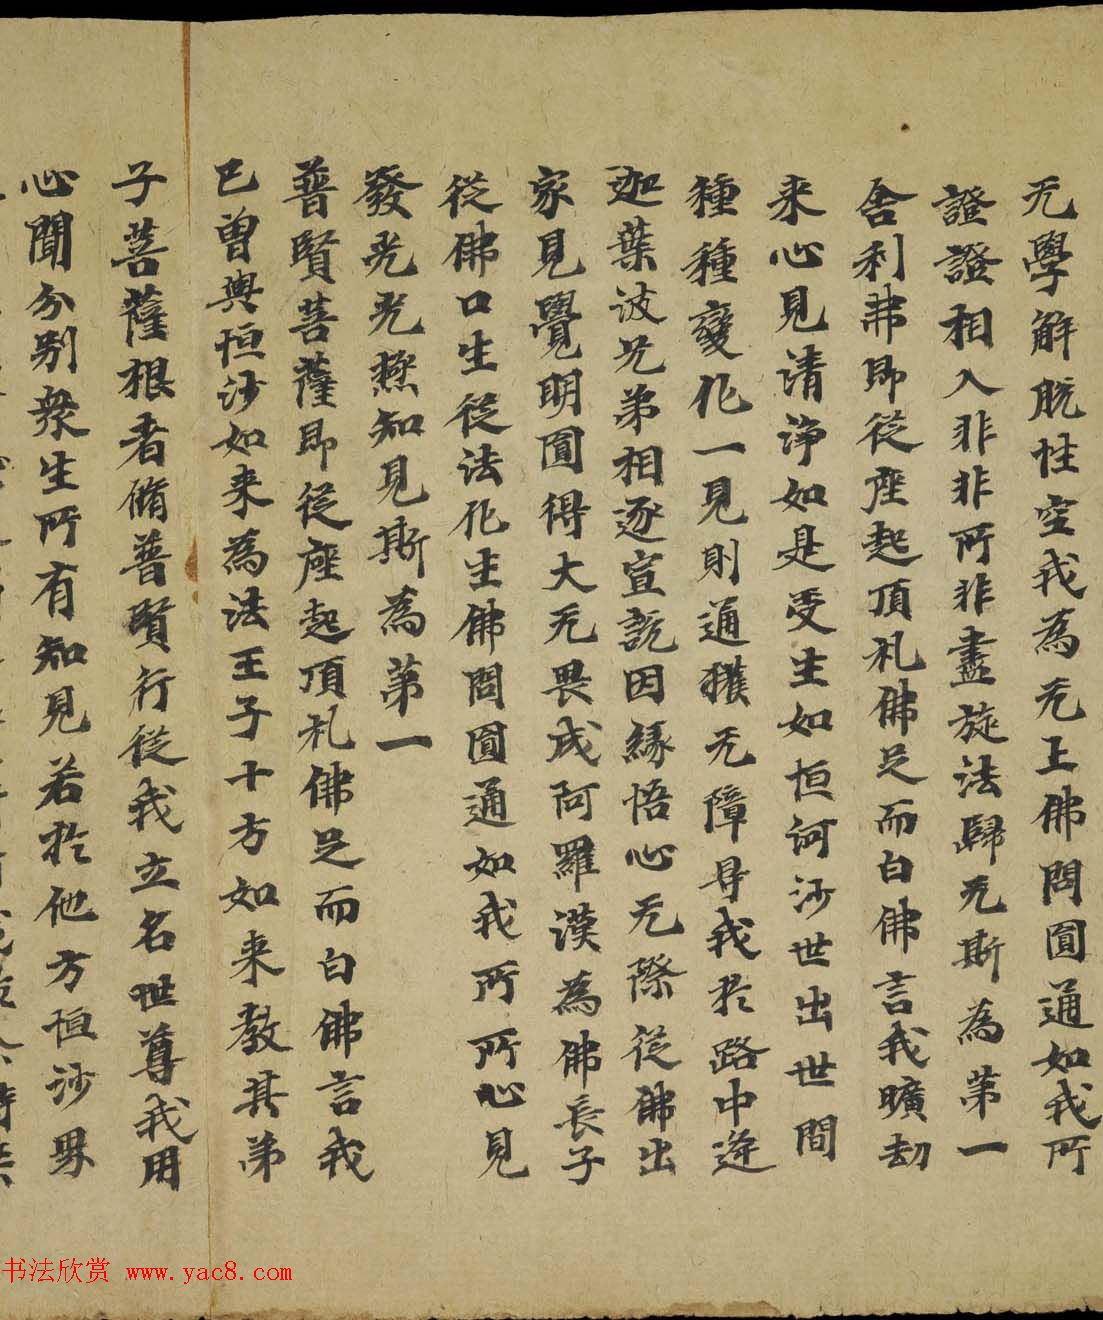 无學解脫性空我為无上佛問圓通如我所
證證相入非非所非盡旋法歸无斯為第一
舍利弗即從座起頂礼佛足而白佛言我曠劫
来心見清浄如是受生如恒河沙世出世間
種種變化一見則通獲无障㝵我於路中逢
迦葉波兄弟相逐宣說因緣悟心无際從佛出
家見覺明圓得大无畏成阿羅漢為佛長子
從佛口生從法化生佛問圓通如我所所心見
發光光極知見斯為第一
普賢菩薩即從座起頂礼佛足而白佛言我
已曾與恒沙如来為法王子十方如来教其弟
子菩薩根者脩普賢行從我立名世尊我用
心聞分別衆生所有知見若於他方恒沙界
书法欣赏 www.yac8.com